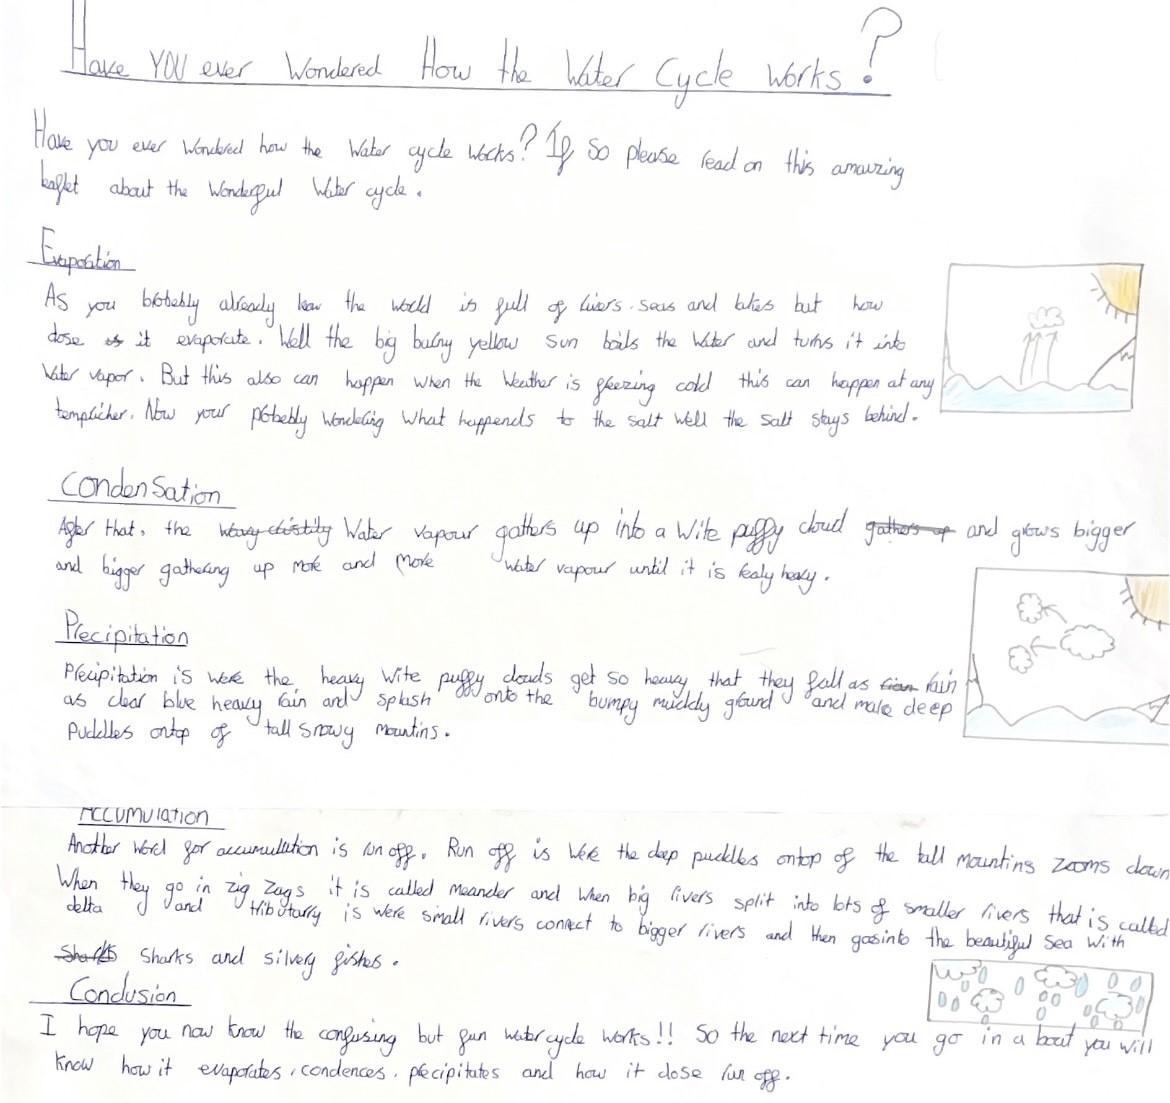 Have YOU ever Wondered How the Water Cycle Works?
Have you ever Wondered how the Water cycle Works? If so please read on this amauzing
leaflet about the Wonderful Water cycle.
Evaporation
As you probebly already know the world is full of rivers. seas and lakes but how
dose it evaporate. Well the big burny yellow sun boils the Water and turns it into
Water vapor. But this also can happen when the Weather is freezing cold this can happen at any
templicher. Now your probebly wondering What happends to the salt well the salt stays behind.
Condensation
After that, the Water vapour gathers up into a Wite puffy cloud and grows bigger
and bigger gathering up more and more water vapour until it is realy heavy.
Precipitation
Precipitation is were the heavy Wite puffy clouds get so heavy that they fall as rain
as clear blue heavy rain and splash onto the bumpy muddy ground and make deep
Puddles ontop of tall snowy mountins.
Accumulation
Another word for accumulation is run off. Run off is were the deep puddles ontop of the tall mountins zooms down
When they go in zig zags it is called meander and when big rivers split into lots of smaller rivers that is called
delta and tributarry is were small rivers connect to bigger rivers and then goes into the beautiful sea with
Sharks and silvery fishes.
Conclusion
I hope you now know the confusing but fun water cycle works!! So the next time you go in a boat you will
know how it evaporates, condences, precipitates and how it dose run off.